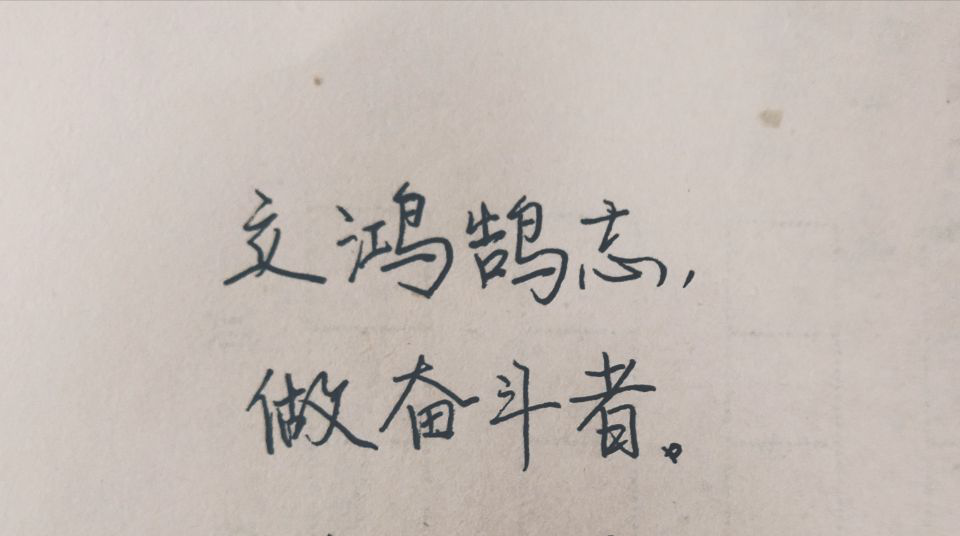 交鸿鹄志,
做奋斗者。